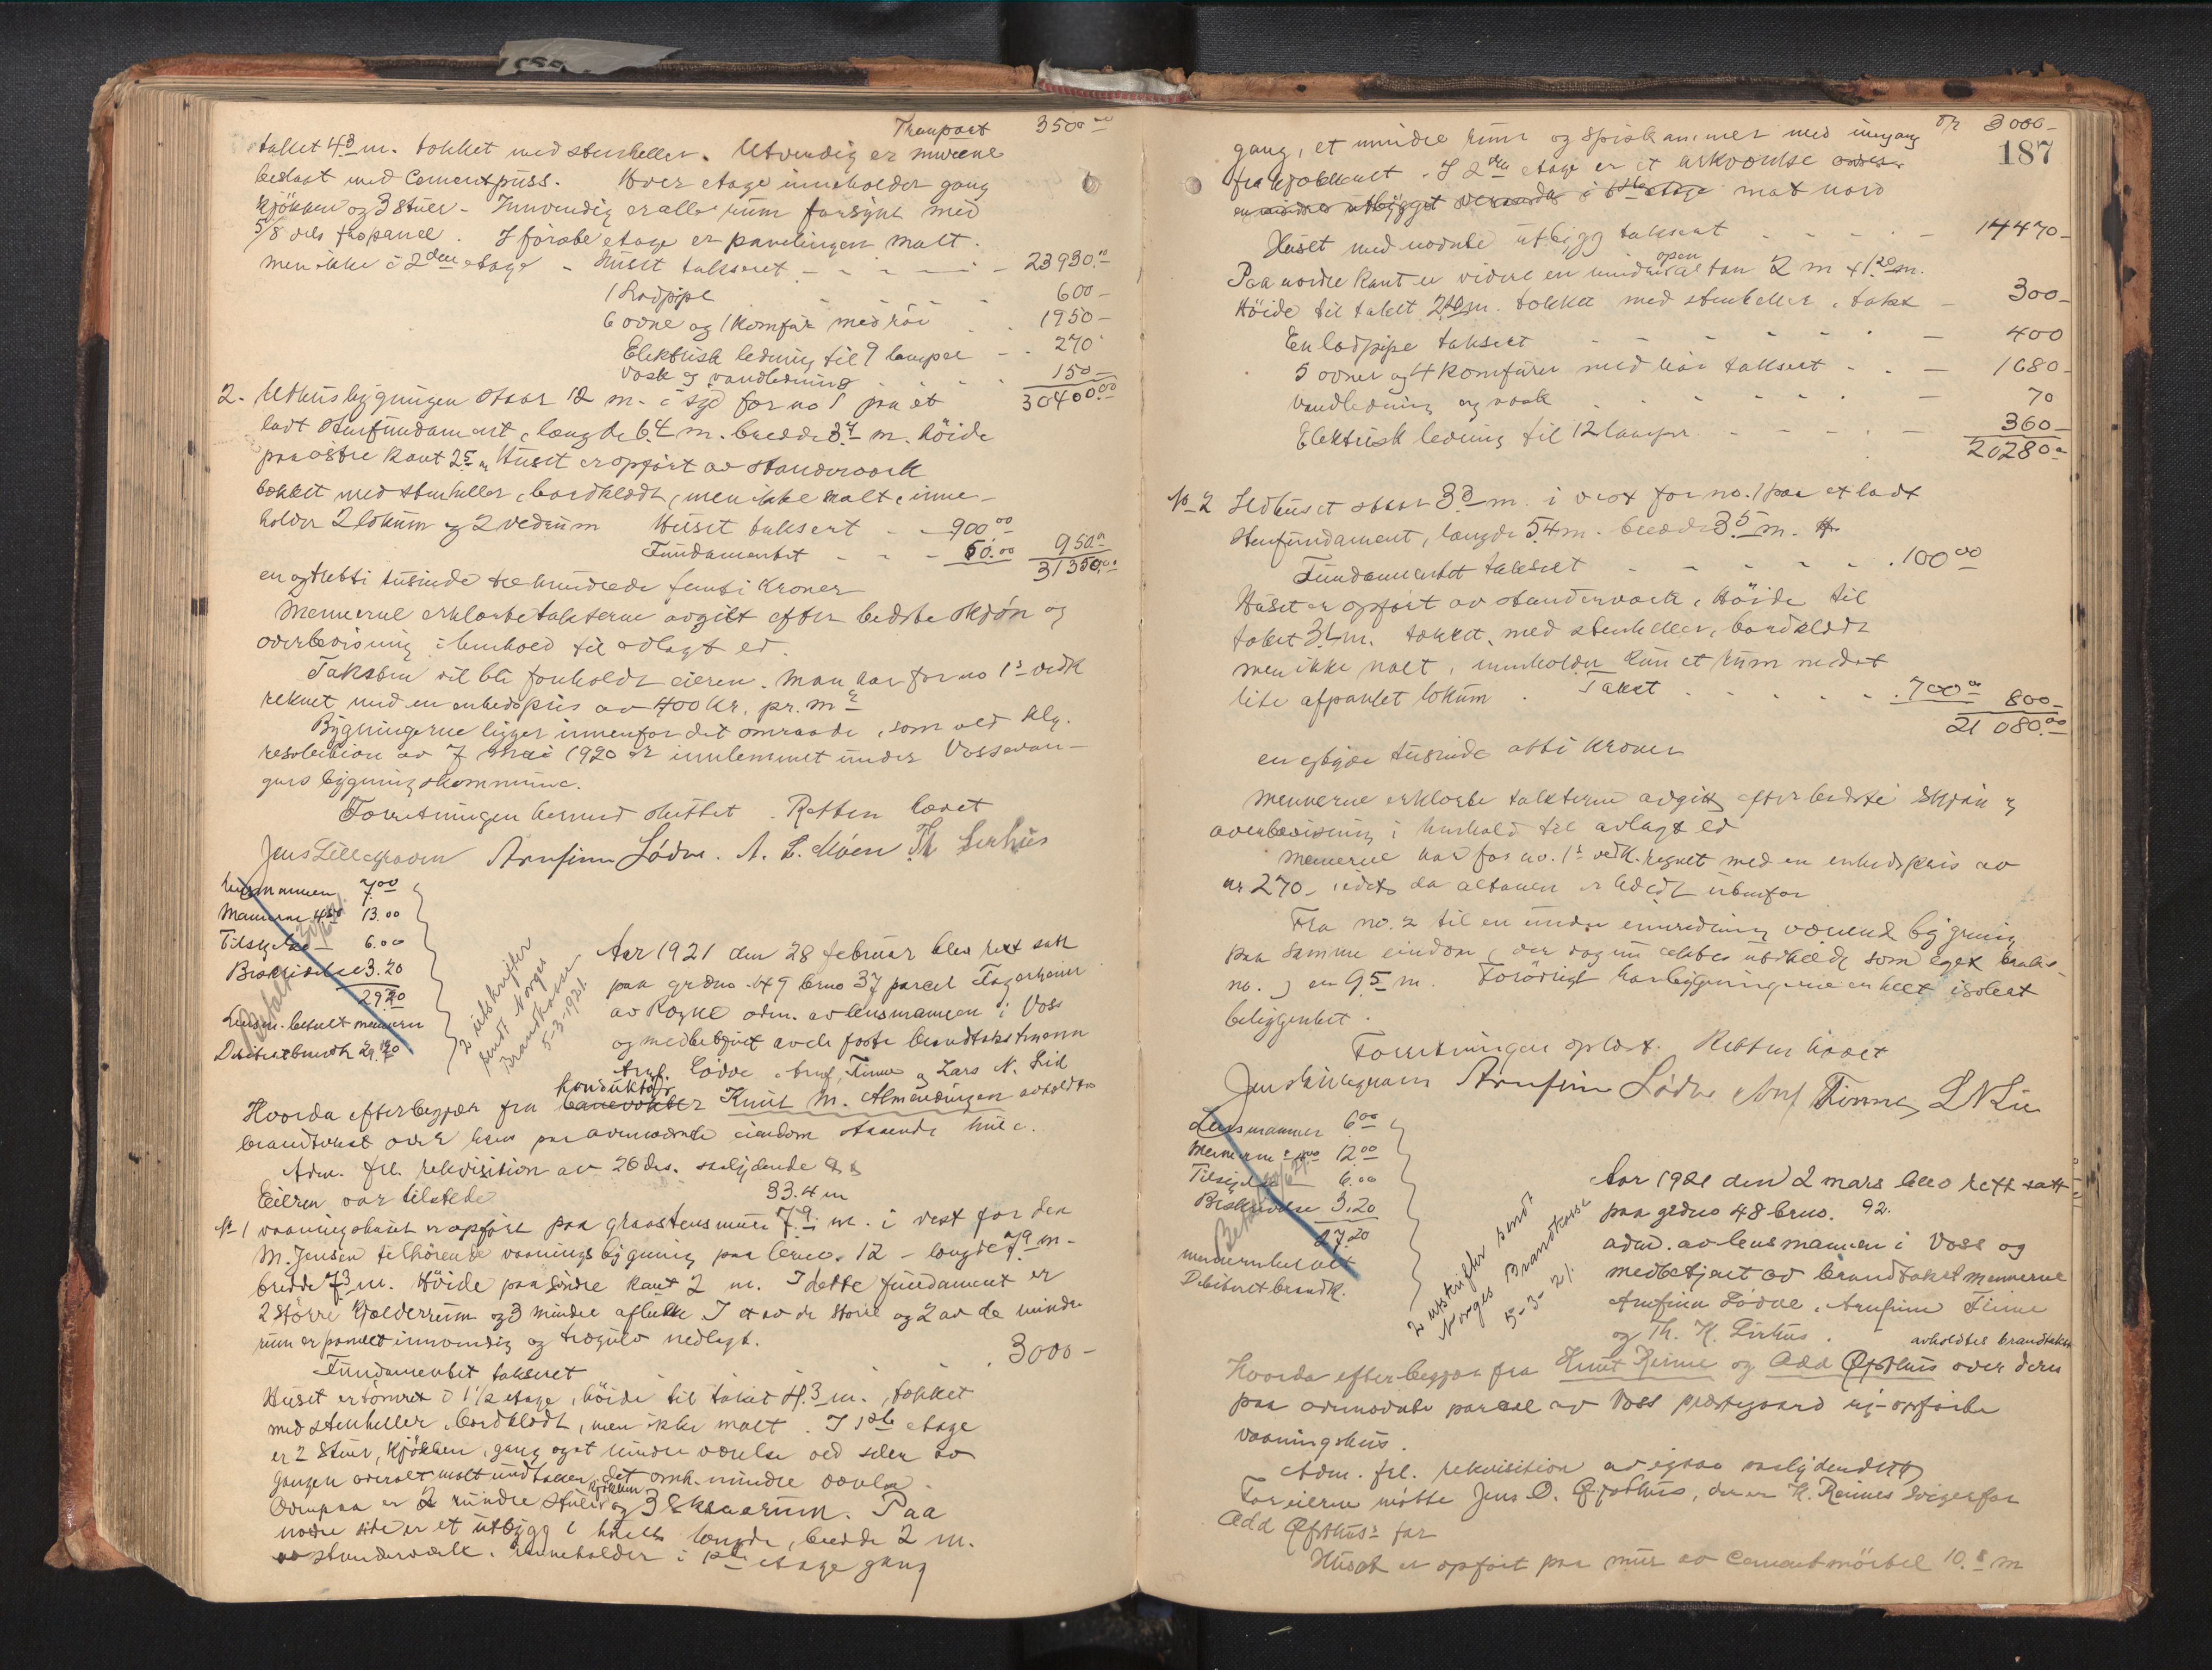 Transport 3500.00
taket 4.3 m. tækket med stenheller. Utvendig er murene
beslaat med Cementpuss. Hver etage inneholder gang
kjøkken og 3 stuer - Innvendig er alle rum forsynt med
5/8 dels faspanel. I første etage er panelingen malt.
men ikke i 2den etage - Huset taksert - 23930.00
1 Ladpipe 600 -
6 ovne og 1 komfur med rør 1950 -
Elektrisk ledning til 9 lamper 270
Vask og vandledning 150 -
30400.00
2. Uthusbygningen staar 12 m. i syd for no 1 paa et
ladt stenfundament, længde 6.4 m. bredde 3.7 m. høide
paa østre kant 2.5 m. Huset er opført av standerværk
tækket med stenheller, bordklædt, men ikke malt, inne-
holder 2 lokum og 2 vedrum Huset taksert - 900.00
Fundamentet - 50.00 950.00
31350.00
en og tretti tusinde tre hundrede femti kroner
Mennerne erklærte taksterne avgitt efter bedste skjøn og
overbevisning i henhold til avlagt ed.
Taksten vil bli forholdt eieren. Man har for no 1s vedk
reknet med en enhedspris av 400 kr. pr. m2
Bygningerne ligger innenfor det omraade, som ved klg.
resolution av 7 mai 1920 er innlemmet under Vossevan-
gens bygningskommune.
Forretningen hermed sluttet. Retten hævet
Jens Lillegraven Arnfinn Lødve. A. L. Moen Th Lirhus
Lensmannen 7.00
Mennerne 4.50 13.00
Tilsigelse 6.00
Beskrivelse 3.20
29.20
Lensm. betalt mennene
Debiteret brandk 29.20
Betalt
2 utskrifter
sendt Norges
Brandkasse
5-3-1921.
Aar 1921 den 28 februar blev rett satt
paa grdno 49 brno 37 parcel Fagerheim
av Rogne adm. av lensmannen i Voss
og medbetjent av de faste brandtakstmenn
Arnf. Lødve, Arnf. Finne og Lars N. Lid
Hvorda efter begjær fra konduktør banevokter Knut M. Almendingen avholdtes
brandtakst over hans paa ovennævnte eiendom staaende huse.
Adm. frl. rekvisition av 26 ds. saalydende
Eieren var tilstede 33.4 m
No 1 vaaningshuset er opført paa graastensmur 7.9 m. i vest for den
M. Jensen tilhørende vaaningsbygning paa brno. 12 - længde 7.9 m -
bredde 7.3 m. Høide paa søndre kant 2 m. I dette fundament er
2 større kjælderrum og 3 mindre aflukke I et av de større og 2 av de mindre
rum er panelet innvendig og trægulv nedlagt.
Fundamentet taksert 3000 -
Huset er tømret i 1 1/2 etage, høide til taket 4.3 m., tækket
med stenheller, bordklædt, men ikke malt. I 1ste etage
er 2 stuer, kjøkken, gang og et mindre værelse ved siden av
gangen overalt malt undtagen det omh. mindre værelse.
Ovenpaa er 2 mindre stuer kjøkken og 3 Ekstrarum. Paa
nordre side er et utbygg i husets længde, bredde 2 m.
av standerværk. inneholder i 1ste etage gang
Tr 3000 -
187
gang, et mindre rum og Spiskammer med inngang
fra kjøkkenet. I 2den etage er et arkværelse
en mindre utbygget veranda i 1ste etage mot nord
Huset med nævnte utbygg taksert 14470 -
Paa nordre kant er videre en mindre open altan 2 m x 1.20 m.
Høide til taket 2.40 m. tækket med stenheller, takst - 300 -
En ladpipe taksert 400
5 ovner og 4 komfurer med rør taksert 1680 -
Vandledning og vask 70
Elektrisk ledning til 12 lamper 360 -
20280.00
No 2 Vedhuset staar 3.3 m. i vest for no. 1 paa et ladt
Stenfundament, længde 5.4 m. bredde 3.5 m.
Fundamentet taksert 100.00
Huset er opført av standerværk, Høide til
taket 3.1 m. tækket med stenheller, bordklædt
men ikke malt, inneholder kun et rum med et
lite afpanlet lokum. Takst 700.00 800 -
21 080.00
en og tyve tusinde otti kroner
Mennerne erklærte taksterne avgitt efter bedste skjøn og
overbevisning i henhold til avlagt ed
Mennerne har for no. 1s vedk. regnet med en enhedspris av
kr 270 -
Fra no. 2 til en under innredning værende bygning
paa samme eiendom
no. er 9.5 m. Forøvrigt har bygningerne en helt isolert
beliggenhet.
Forretningen oplæst. Retten hævet
Jens Lillegraven Arnfinn Lødve Arnf Finne, L N Lid
Lensmannen 6.00
Mennerne 4.00 12.00
Tilsigelse 6.00
Beskrivelse 3.20
27.20
mennerne betalt
Debiteret brandk.
Betalt
2 utskrifter sendt
Norges Brandkasse
5-3-21.
Aar 1921 den 2 mars blev rett satt
paa grdno 48 brno. 92.
adm. av lensmannen i Voss og
medbetjent av brandtakstmennerne
Arnfinn Lødve, Arnfinn Finne
og Th. K. Lirhus. avholdtes brandtakst
Hvorda efter begjær fra Knut Reime og Odd Øfsthus over deres
paa ovennævnte parcel av Voss prestegaard ny-opførte
vaaningshus.
Adm. frl. rekvisition av igaar saalydende
For eierne møtte Jens O. Øfsthus, der er K. Reimes svigerfar
Odd Øfsthus' far
Huset er opført paa mur av cementmørtel 10.8 m